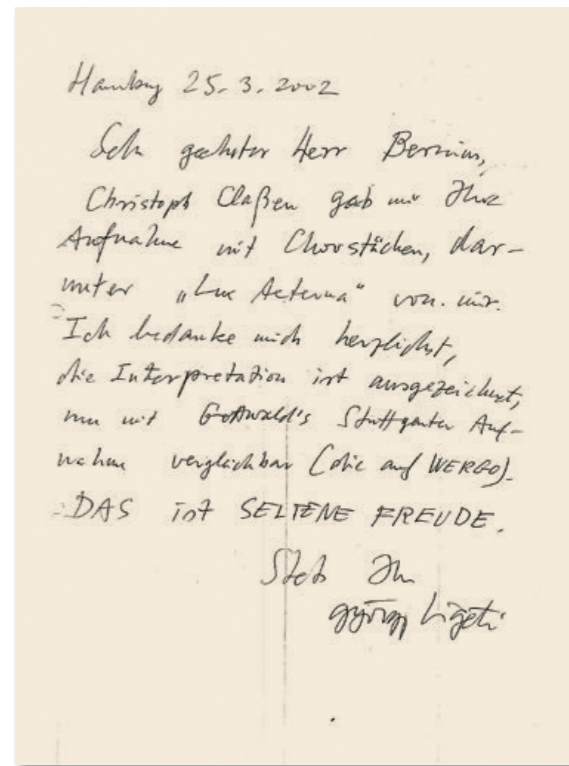 Hamburg 25. 3. 2002
Sehr geehrter Herr Bernius,
Christoph Claßen gab mir Ihre
Aufnahme mit Chorstücken, dar-
unter „Lux Aeterna" von mir.
Ich bedanke mich herzlichst,
die Interpretation ist ausgezeichnet,
nur mit Gottwald's Stuttgarter Auf-
nahme vergleichbar (die auf WERGO).
DAS ist SELTENE FREUDE.
Stets Ihr
György Ligeti